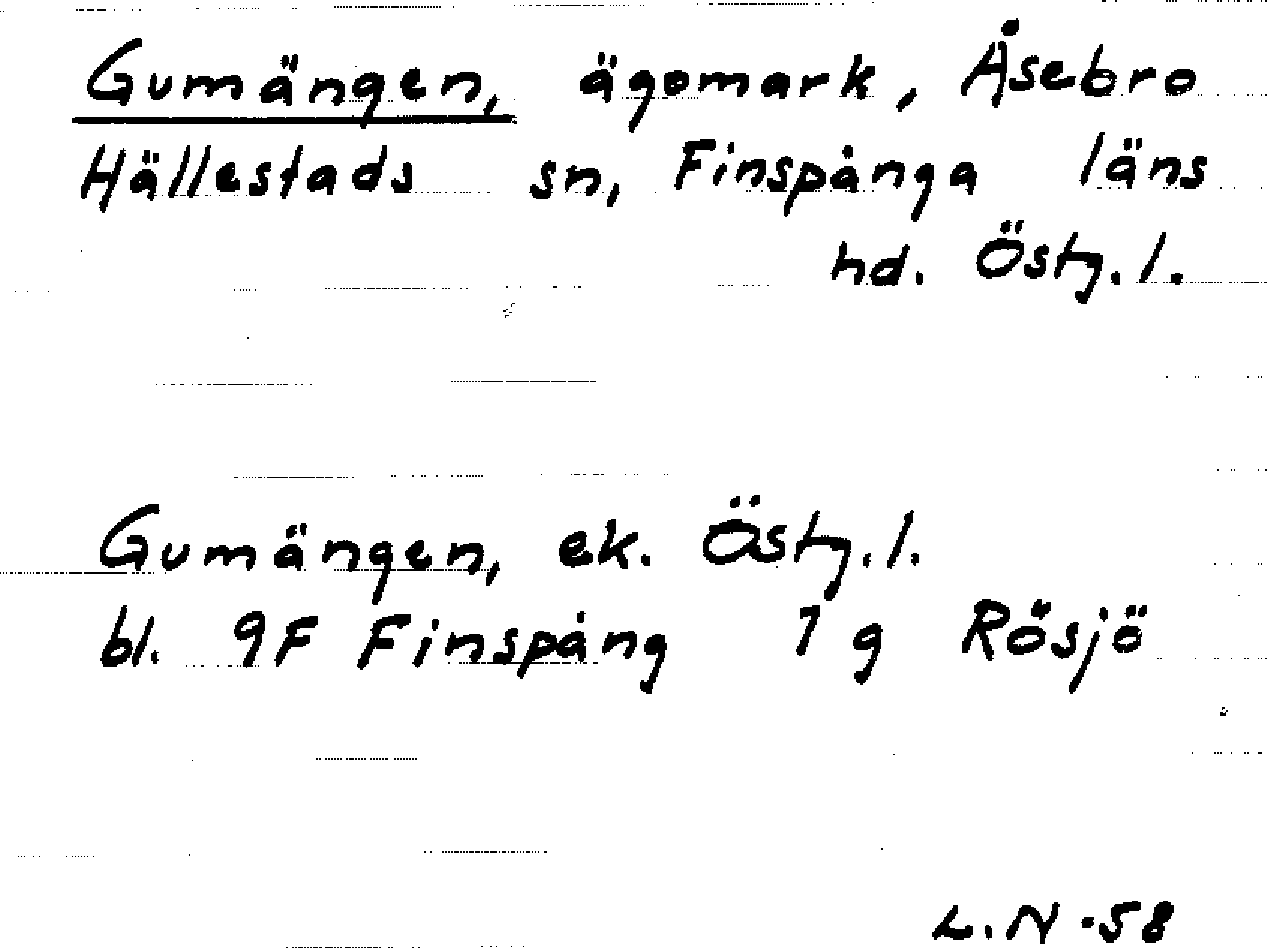 Gumängen, ägomark, Åsebro
Hällestads sn, Finspånga läns
hd. Östg.l.
Gumängen, ek. Östg.l.
bl. 9F Finspång 7 g Rösjö
L.N -58